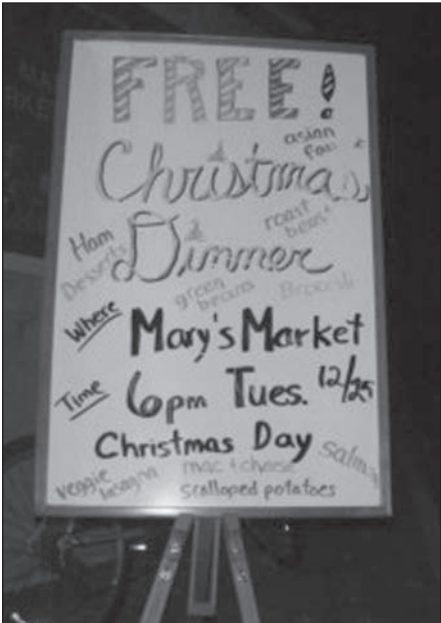 FREE!
asian
Christmas
roast
beast
Ham
Desserts
Dinner
green
beans
Broccoli
Where
Mary's Market
Time
6pm Tues. 12/25
Christmas Day
salmon
veggie
lasagna
mac + cheese
scalloped potatoes